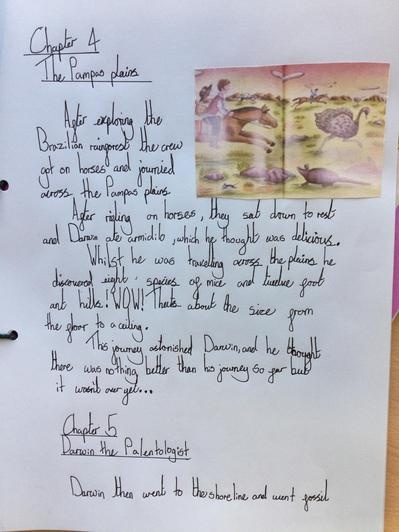 Chapter 4
The Pampas plains
After exploring the
Brazilian rainforest the crew
got on horses and journied
across the Pampas plains
After riding on horses, they sat down to rest
and Darwin ate armidilo, which he thought was delicious.
Whilst he was travelling across the plains he
discovered eight species of mice and twelve foot
ant hills! WOW! Thats about the size from
the floor to a ceiling.
This journey astonished Darwin, and he thought
there was nothing better than his journey so far but
it wasn't over yet...
Chapter 5
Darwin the Palentologist
Darwin then went to the shoreline and went fossil